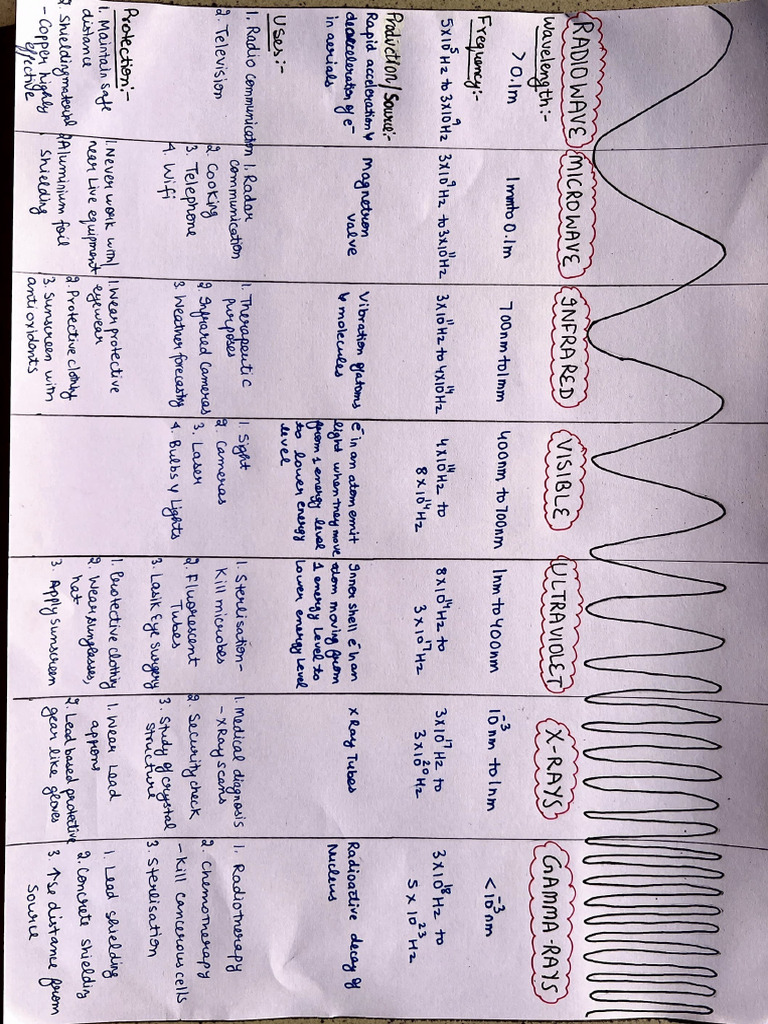 RADIOWAVE
MICROWAVE
INFRARED
VISIBLE
ULTRAVIOLET
X-RAYS
GAMMA-RAYS
Wavelength:-
> 0.1m
1mm to 0.1m
700nm to 1mm
400nm to 700nm
1nm to 400nm
10⁻³nm to 1nm
< 10⁻³nm
Frequency:-
5x10⁵Hz to 3x10⁹Hz
3x10⁹Hz to 3x10¹¹Hz
3x10¹¹Hz to 4x10¹⁴Hz
4x10¹⁴Hz to
8x10¹⁴Hz
8x10¹⁴Hz to
3x10¹⁷Hz
3x10¹⁷Hz to
3x10²⁰Hz
3x10¹⁸Hz to
5x10²³Hz
Production/Source:-
Rapid acceleration &
deaccelerator of e⁻
in aerials
Magnetron
valve
Vibration of atoms
& molecules
e⁻ in an atom emit
light when they move
from 1 energy level
to lower energy
level
Inner shell e⁻ in an
atom moving from
1 energy level to
lower energy level
X Ray Tubes
Radioactive decay of
Nucleus
Uses:-
1. Radio communication
2. Television
1. Radar
communication
2. Cooking
3. Telephone
4. Wifi
1. Therapeutic
purposes
2. Infrared cameras
3. Weather forecasting
1. Sight
2. Cameras
3. Laser
4. Bulbs & Lights
1. Sterilisation-
Kill microbes
2. Fluorescent
Tubes
3. Lasik Eye Surgery
1. Medical diagnosis
- XRay scans
2. Security check
3. Study of crystal
structure
1. Radiotherapy
2. Chemotherapy
- Kill cancerous cells
3. Sterilisation
Protection:-
1. Maintain safe
distance
2. Shielding material
- Copper highly
effective
1. Never work with
near Live equipment
2. Aluminium foil
shielding
1. Wear protective
eyewear
2. Protective clothing
3. Sunscreen with
antioxidants
1. Protective clothing
2. Wear sunglasses,
hat
3. Apply sunscreen
1. Wear Lead
aprons
2. Lead based protective
gear like gloves
1. Lead shielding
2. Concrete shielding
3. ↑se distance from
source